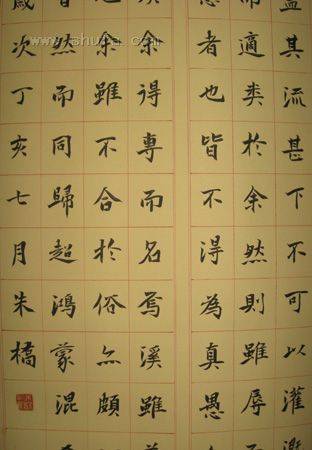 蓋其流甚下不可以灌溉
而適类於余然則雖辱
愚者也皆不得為真愚
溪余得專而名焉溪雖
余雖不合於俗亦頗
然而同歸超鴻蒙混
歲次丁亥七月朱橘